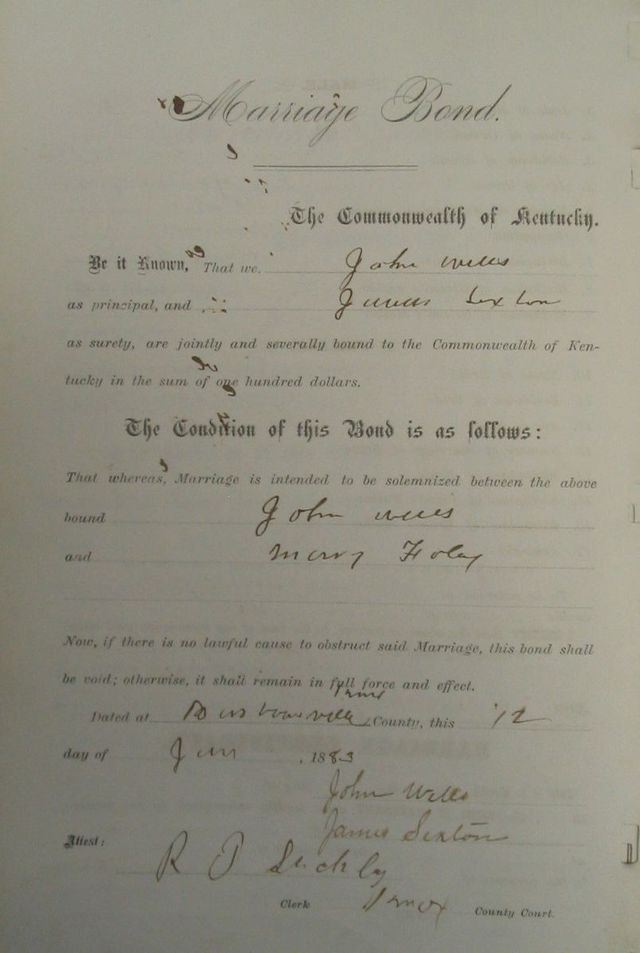 Marriage Bond.
The Commonwealth of Kentucky.
Be it Known, That we John Wells
as principal, and James Sexton
as surety, are jointly and severally bound to the Commonwealth of Ken-
tucky in the sum of one hundred dollars.
The Condition of this Bond is as follows:
That whereas, Marriage is intended to be solemnized between the above
bound John Wells
and Mary Foley
Now, if there is no lawful cause to obstruct said Marriage, this bond shall
be void; otherwise, it shall remain in full force and effect.
Knox
Dated at Barbourville County, this 12
day of , 1883
John Wells
James Sexton
Attest: R P
Clerk Knox County Court.